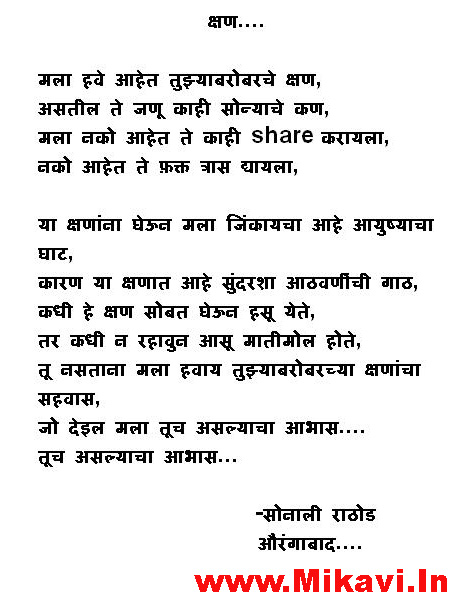 क्षण....
मला हवे आहेत तुझ्याबरोबरचे क्षण,
असतील ते जणू काही सोन्याचे कण,
मला नको आहेत ते काही share करायला,
नको आहेत ते फ़क्त त्रास द्यायला,
या क्षणांना घेऊन मला जिंकायचा आहे आयुष्याचा
घाट,
कारण या क्षणात आहे सुंदरशा आठवणींची गाठ,
कधी हे क्षण सोबत घेऊन हसू येते,
तर कधी न रहावुन आसू मातीमोल होते,
तू नसताना मला हवाय तुझ्याबरोबरच्या क्षणांचा
सहवास,
जो देइल मला तूच असल्याचा आभास....
तूच असल्याचा आभास...
-सोनाली राठोड
औरंगाबाद....
www.Mikavi.In